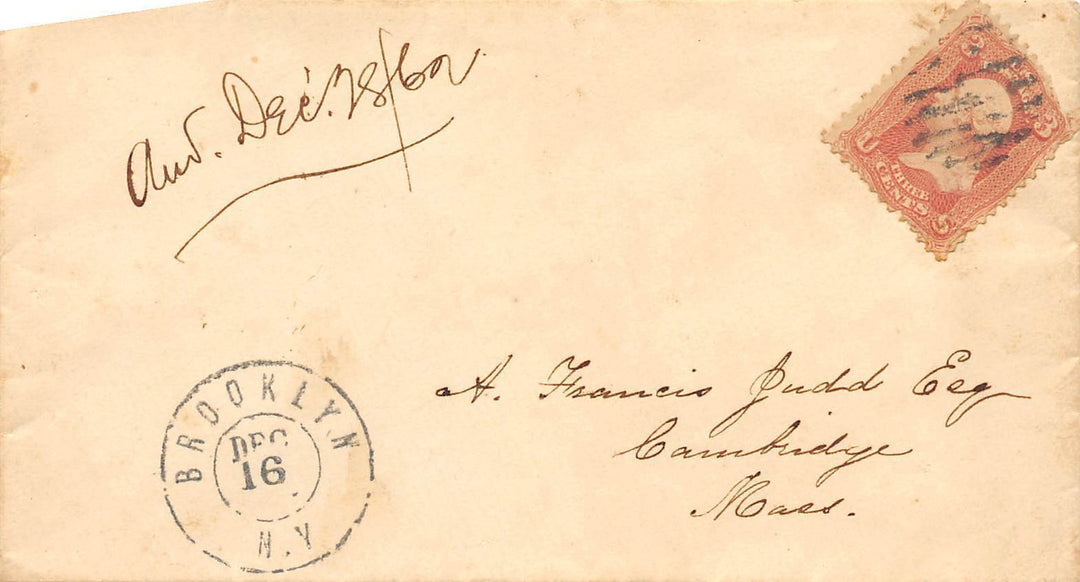 Ans. Dec. 28/62
3 3
U S
THREE
CENTS
BROOKLYN
DEC
16
N.Y
A. Francis Judd Esq
Cambridge
Mass.